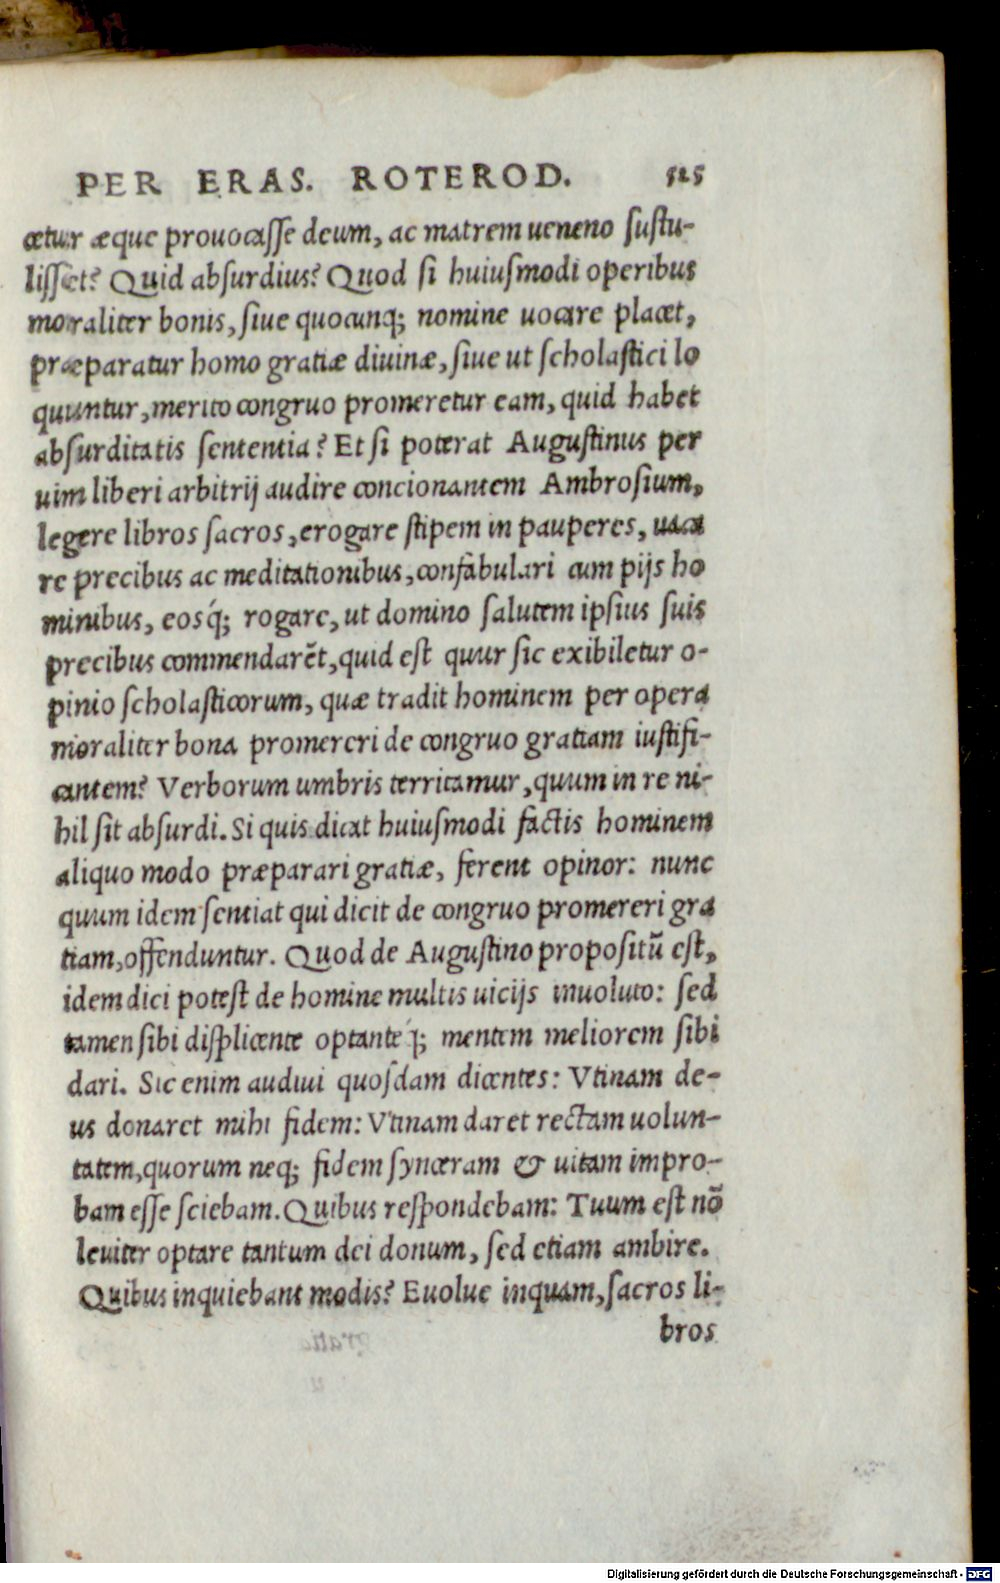 PER ERAS. ROTEROD. 525
cetur æque prouocasse deum, ac matrem ueneno sustu-
lisset? Quid absurdius? Quod si huiusmodi operibus
moraliter bonis, siue quocunq; nomine uocare placet,
præparatur homo gratiæ diuinæ, siue ut scholastici lo
quuntur, merito congruo promeretur eam, quid habet
absurditatis sententia? Et si poterat Augustinus per
uim liberi arbitrij audire concionantem Ambrosium,
legere libros sacros, erogare stipem in pauperes, uaca
re precibus ac meditationibus, confabulari cum pijs ho
minibus, eosq́; rogare, ut domino salutem ipsius suis
precibus commendarẽt, quid est quur sic exibiletur o-
pinio scholasticorum, quæ tradit hominem per opera
moraliter bona promereri de congruo gratiam iustifi-
cantem? Verborum umbris territamur, quum in re ni-
hil sit absurdi. Si quis dicat huiusmodi factis hominem
aliquo modo præparari gratiæ, ferent opinor: nunc
quum idem sentiat qui dicit de congruo promereri gra
tiam, offenduntur. Quod de Augustino propositũ est,
idem dici potest de homine multis uicijs inuoluto: sed
tamen sibi displicente optanteq́; mentem meliorem sibi
dari. Sic enim audiui quosdam dicentes: Vtinam de-
us donaret mihi fidem: Vtinam daret rectam uolun-
tatem, quorum neq; fidem synceram & uitam impro-
bam esse sciebam. Quibus respondebam: Tuum est nõ
leuiter optare tantum dei donum, sed etiam ambire.
Quibus inquiebant modis? Euolue inquam, sacros li-
bros
Digitalisierung gefördert durch die Deutsche Forschungsgemeinschaft - DFG